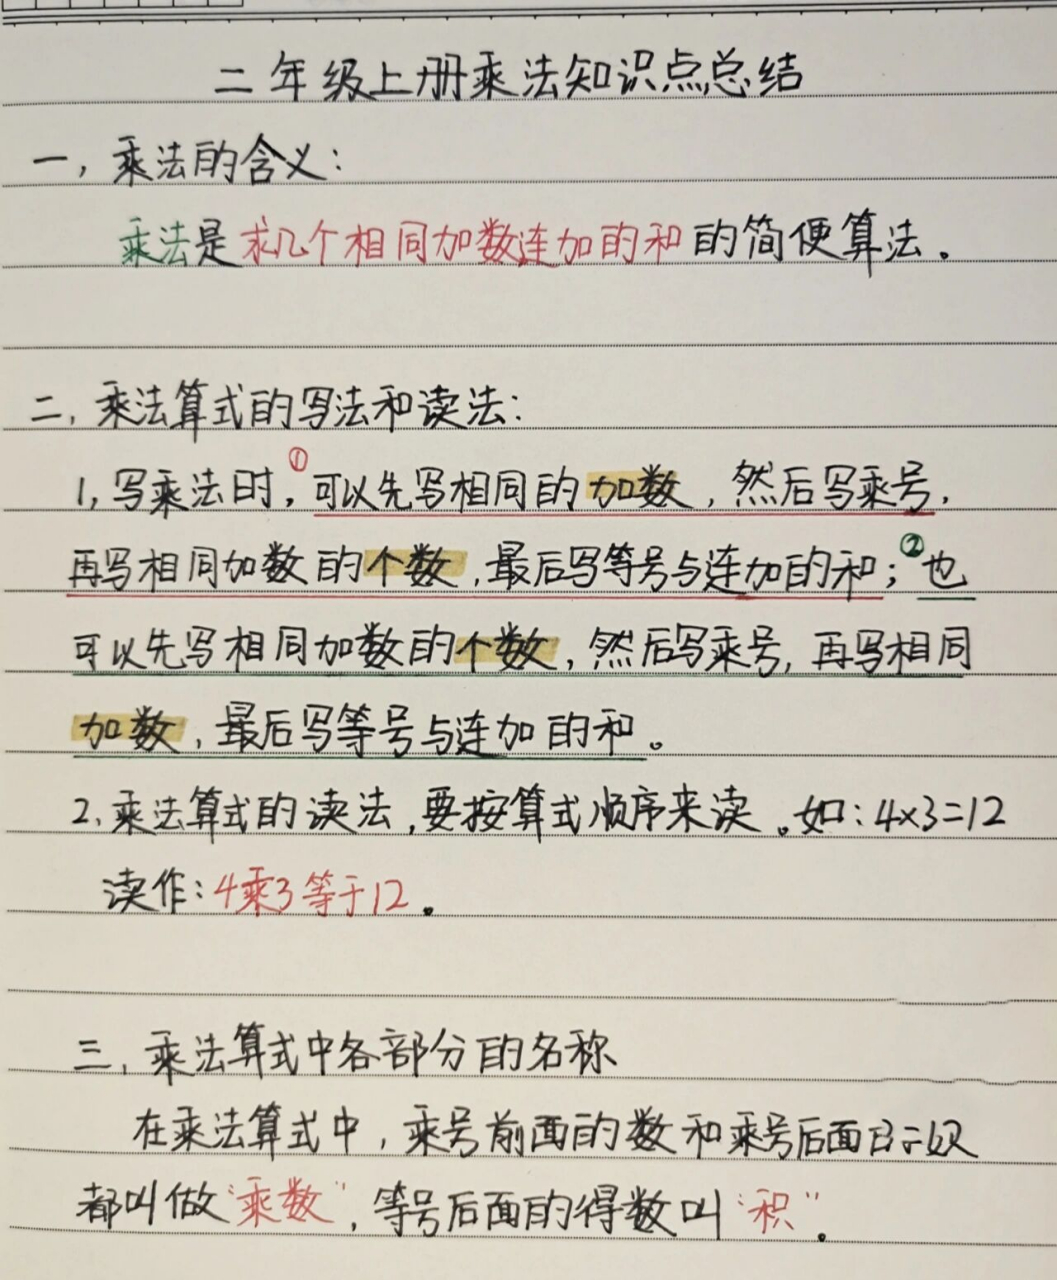 二年级上册乘法知识点总结
一，乘法的含义：
乘法是求几个相同加数连加的和的简便算法。
二，乘法算式的写法和读法：
1，写乘法时，①可以先写相同的加数，然后写乘号，
再写相同加数的个数，最后写等号与连加的和；②也
可以先写相同加数的个数，然后写乘号，再写相同
加数，最后写等号与连加的和。
2、乘法算式的读法，要按算式顺序来读。如：4×3=12
读作：4乘3等于12。
三，乘法算式中各部分的名称
在乘法算式中，乘号前面的数和乘号后面
都叫做“乘数”，等号后面的得数叫“积”。